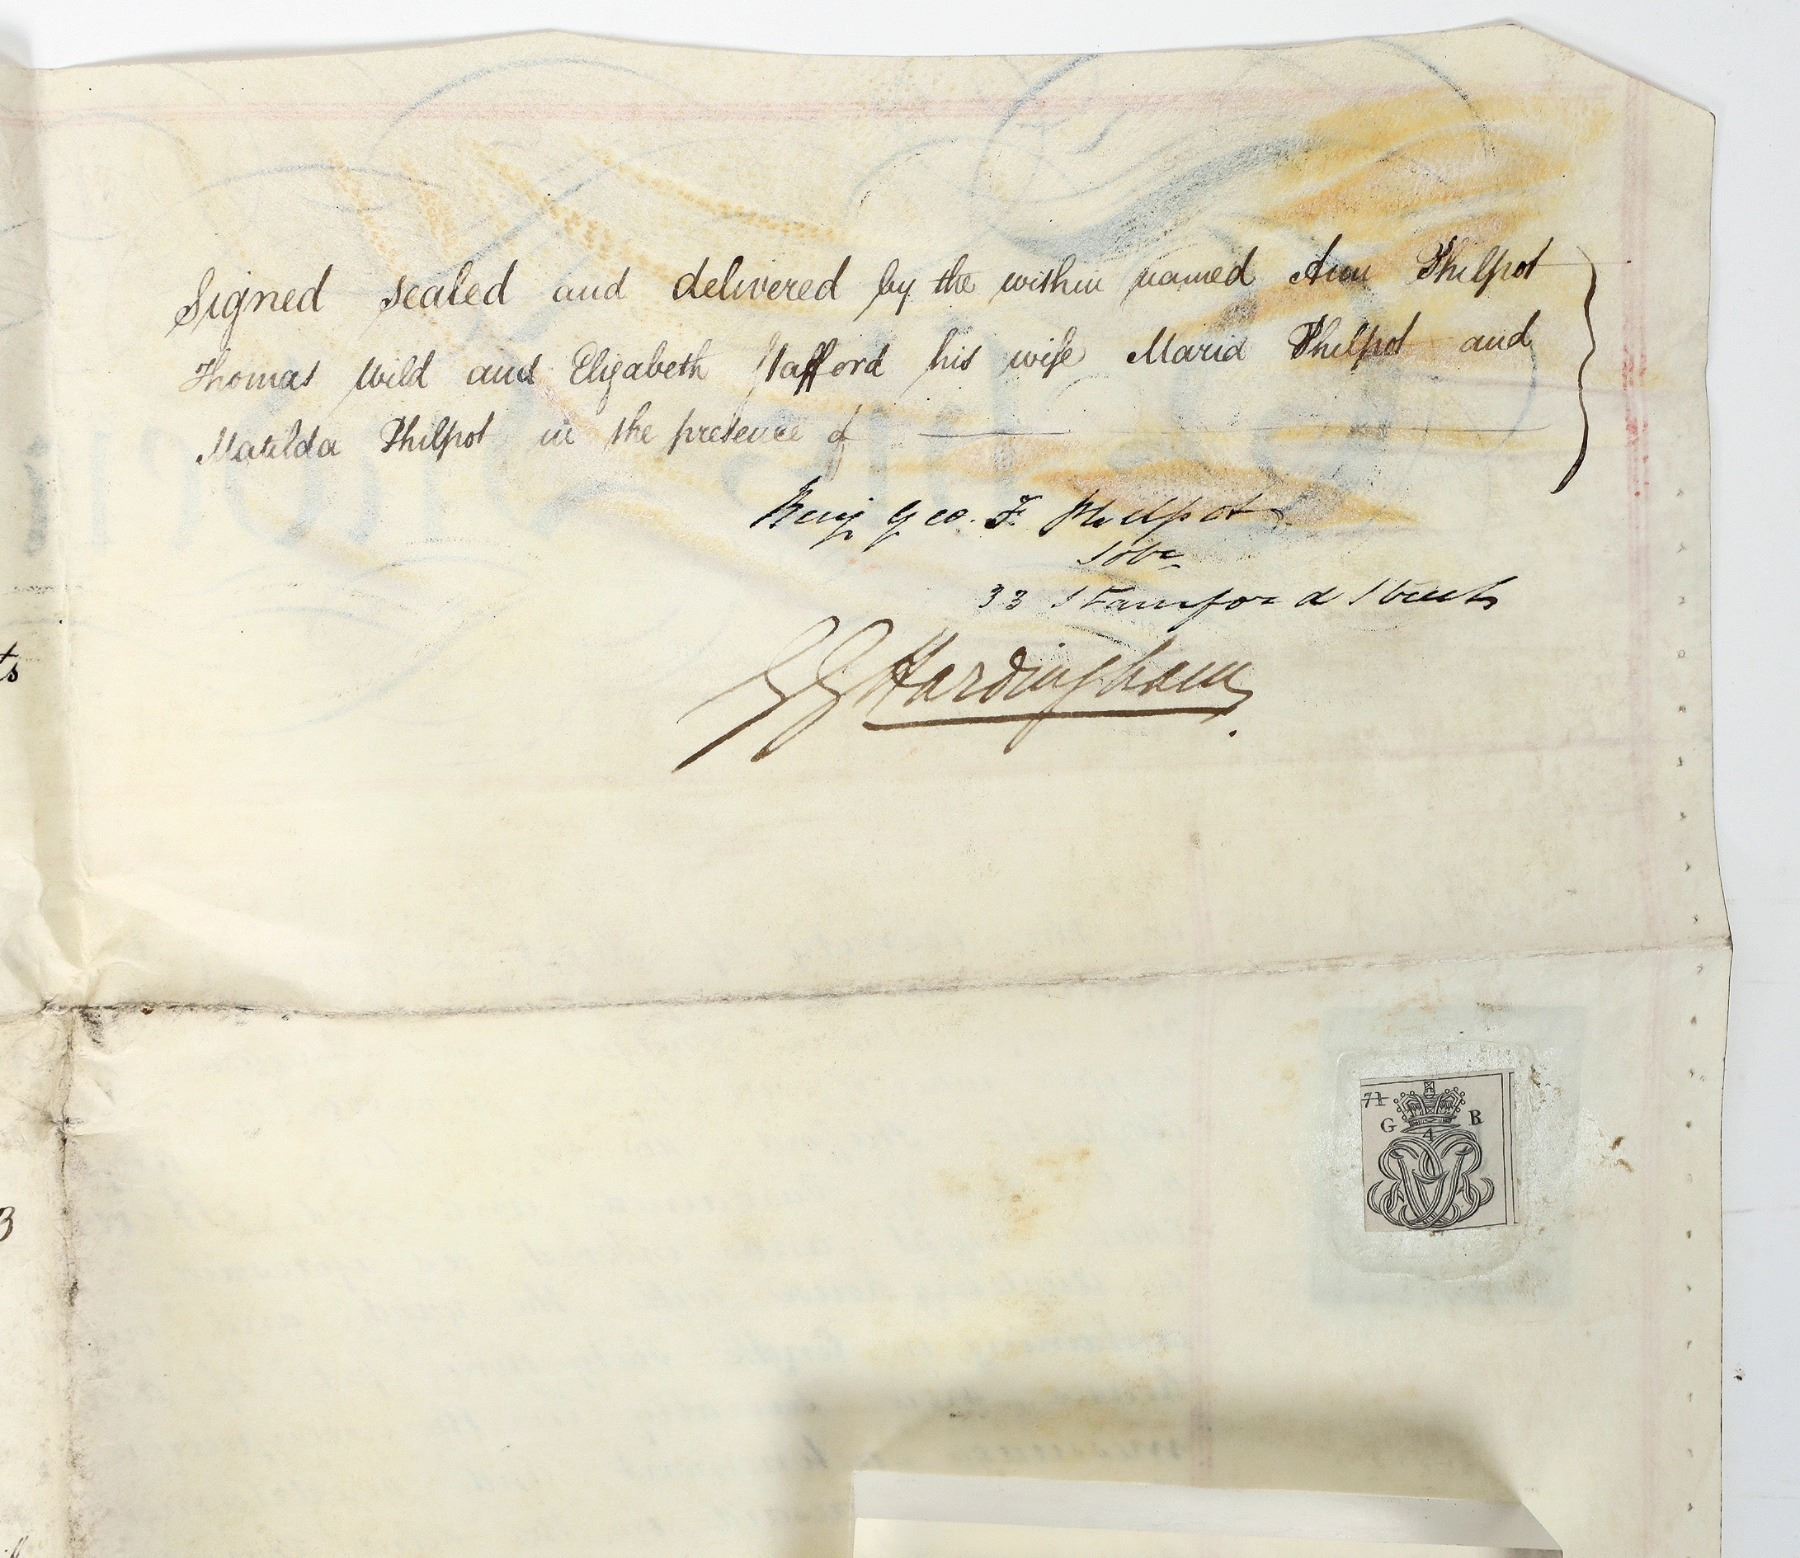 Signed sealed and delivered by the within named Ann Philpot
Thomas Wild and Elizabeth Stafford his wife Maria Philpot and
Matilda Philpot in the presence of
Benj Geo. F. Philpot
Solr
33 Stamford Street
GG Hardingham
ts
3
71
G R
4